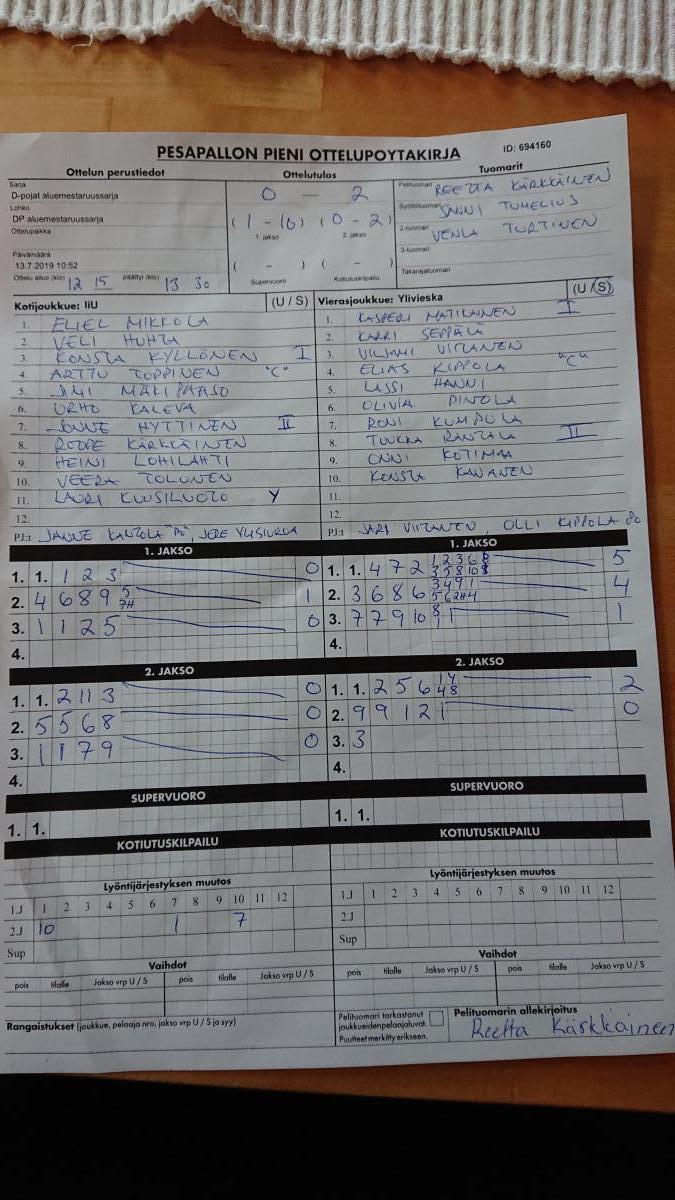 PESÄPALLON PIENI OTTELUPÖYTÄKIRJA
ID: 694160
Ottelun perustiedot
Sarja
D-pojat aluemestaruussarja
Lohko
DP aluemestaruussarja
Ottelupaikka
Päivämäärä
13.7.2019 10:52
Ottelu alkoi (klo) 12 15 päättyi (klo) 13 30
Ottelutulos
0 - 2
(1 - 10) (0 - 2)
1. jakso 2. jakso
( - ) ( - )
Supervuoro Kotiutuskilpailu
Tuomarit
Pelituomari REETTA KÄRKKÄINEN
Syöttötuomari SANNI TUMELIUS
2-tuomari VENLA TURTINEN
3-tuomari
Takarajatuomari
Kotijoukkue: IiU (U / S)
1. ELIEL MIKKOLA
2. VELI HUHTA
3. KONSTA KYLLÖNEN I
4. ARTTU TOPPINEN "C"
5. JIMI MÄKIPAASO
6. URHO KALEVA
7. JONNE HYTTINEN II
8. ROOPE KÄRKKÄINEN
9. HEINI LOHILAHTI
10. VEERA TOLONEN
11. LAURI KUUSILUOTO Y
12.
PJ:t JANNE KAUTOLA "PÖ", JERE YLISIURUA
Vierasjoukkue: Ylivieska (U / S)
1. KASPERI MATILAINEN I
2. KARRI SEPPÄLÄ
3. VILJAMI VIITANEN
4. ELIAS KIPPOLA "C"
5. LASSI HANNI
6. OLIVIA PINOLA
7. RONI KUMPULA
8. TUUKKA RANTALA II
9. ONNI KOTIMAA
10. KONSTA KANANEN
11.
12.
PJ:t JARI VIITANEN, OLLI KIPPOLA PÖ
1. JAKSO
1. 1. 1 2 3 0
2. 4 6 8 9 5 7# 1
3. 1 1 2 5 0
4.
2. JAKSO
1. 1. 2 11 3 0
2. 5 5 6 8 0
3. 1 1 7 9 0
4.
SUPERVUORO
1. 1.
KOTIUTUSKILPAILU
1. JAKSO
1. 1. 4 7 2 1 2 3 6 8 5
3 5 8 10 8
2. 3 6 8 6 3 4 9 1 4
5 6 2#4
3. 7 7 9 10 8 1 1
4.
2. JAKSO
1. 1. 2 5 6 1 4 2
4 8
2. 9 9 1 2 1 0
3. 3
4.
SUPERVUORO
1. 1.
KOTIUTUSKILPAILU
Lyöntijärjestyksen muutos
1.J 1 2 3 4 5 6 7 8 9 10 11 12
2.J 10 1 7
Sup
Vaihdot
pois tilalle Jakso vrp U / S pois tilalle Jakso vrp U / S
Rangaistukset (joukkue, pelaaja nro, jakso vrp U / S ja syy)
Lyöntijärjestyksen muutos
1.J 1 2 3 4 5 6 7 8 9 10 11 12
2.J
Sup
Vaihdot
pois tilalle Jakso vrp U / S pois tilalle Jakso vrp U / S
Pelituomari tarkastanut
joukkueidenpelaajaluvat.
Puutteet merkitty erikseen.
Pelituomarin allekirjoitus
Reetta Kärkkäinen